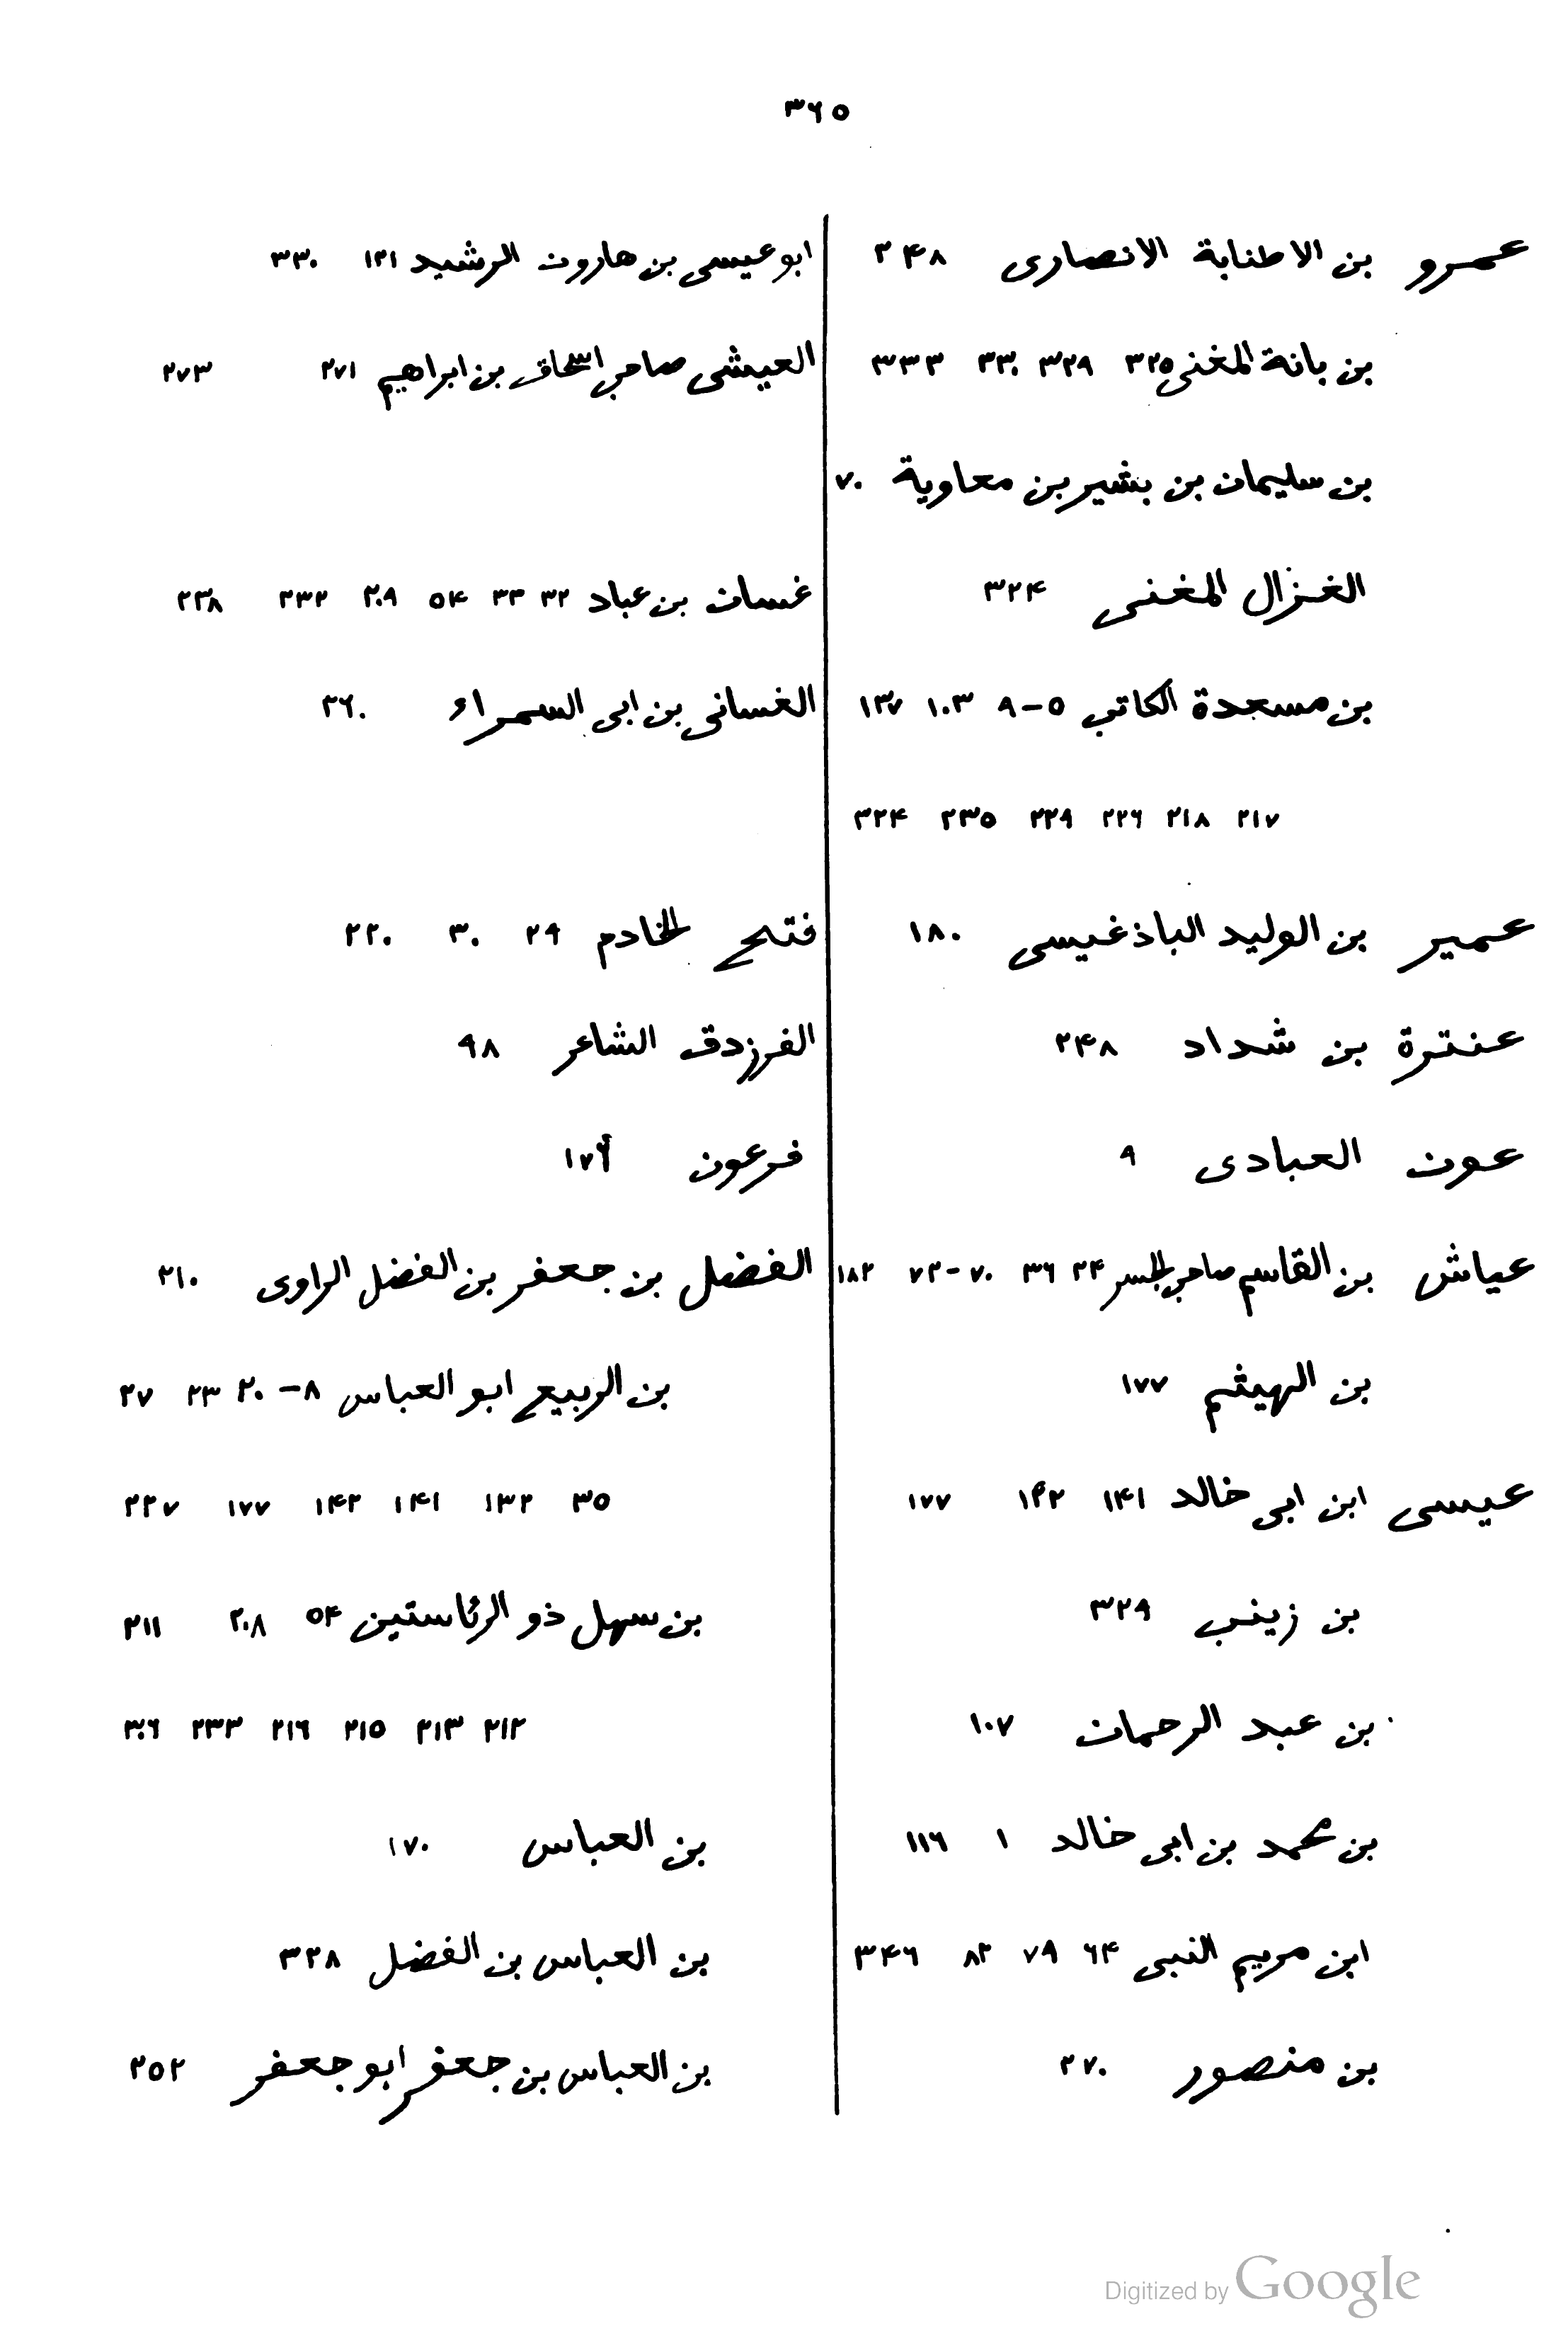 ٣٦٥
عمرو بن الاطنابة الانصارى ٢۴٨
بن بانة المغنى ٣٢٥ ٣٢٩ ٣٣٠ ٣٣٣
بن سليمان بن بشير بن معاوية ٧٠
الغزال المغنى ٣٢۴
بن مسعدة الكاتب ٥-٩ ١٠٣ ١٣٧
٢١٧ ٢١٨ ٢٢٦ ٢٢٩ ٢٣٥ ٣٢۴
عمير بن الوليد الباذغيسى ١٨٠
عنترة بن شداد ٢۴٨
عون العبادى ٩
عياش بن القاسم صاحب الجسر ٢۴ ٣٦ ٧٠-٧٢ ١٨٢
بن الهيثم ١٧٧
عيسى ابن ابى خالد ١۴١ ١۴٢ ١٧٧
بن زينب ٣٢٩
بن عبد الرحمان ١٠٧
بن محمد بن ابى خالد ١ ١١٦
ابن مريم النبى ٦۴ ٧٩ ٨٢ ٣۴٦
بن منصور ٢٧٠
ابو عيسى بن هارون الرشيد ١٢١ ٣٣٠
العيشى صاحب اسحاق بن ابراهيم ٢٧١ ٢٧٣
غسان بن عباد ٣٢ ٣٣ ٥۴ ٢٠٩ ٢٣٢ ٢٣٨
الغسانى بن ابى السمراء ٢٦٠
فتح الخادم ٢٩ ٣٠ ٢٢٠
الفرزدق الشاعر ٩٨
فرعون ١٧٦
الفضل بن جعفر بن الفضل الراوى ٢١٠
بن الربيع ابو العباس ٨-٢٠ ٢٣ ٢٧
٣٥ ١٣٢ ١۴١ ١۴٢ ١٧٧ ٢٢٧
بن سهل ذو الرئاستين ٥۴ ٢٠٨ ٢١١
٢١٢ ٢١٣ ٢١٥ ٢١٦ ٢٣٣ ٣٠٦
بن العباس ١٧٠
بن العباس بن الفضل ٣٢٨
بن العباس بن جعفر ابو جعفر ٢٥٢
Digitized by Google